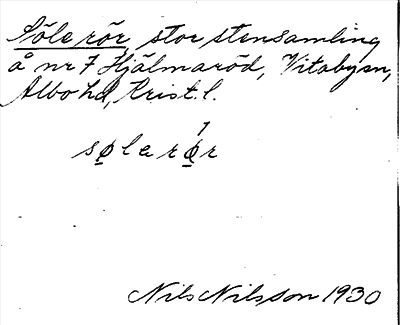 Söle rör stor stensamling
å nr 7 Hjälmaröd, Vitabysn,
Albo hd, Krist. l.
1
sølarør
Nils Nilsson 1930